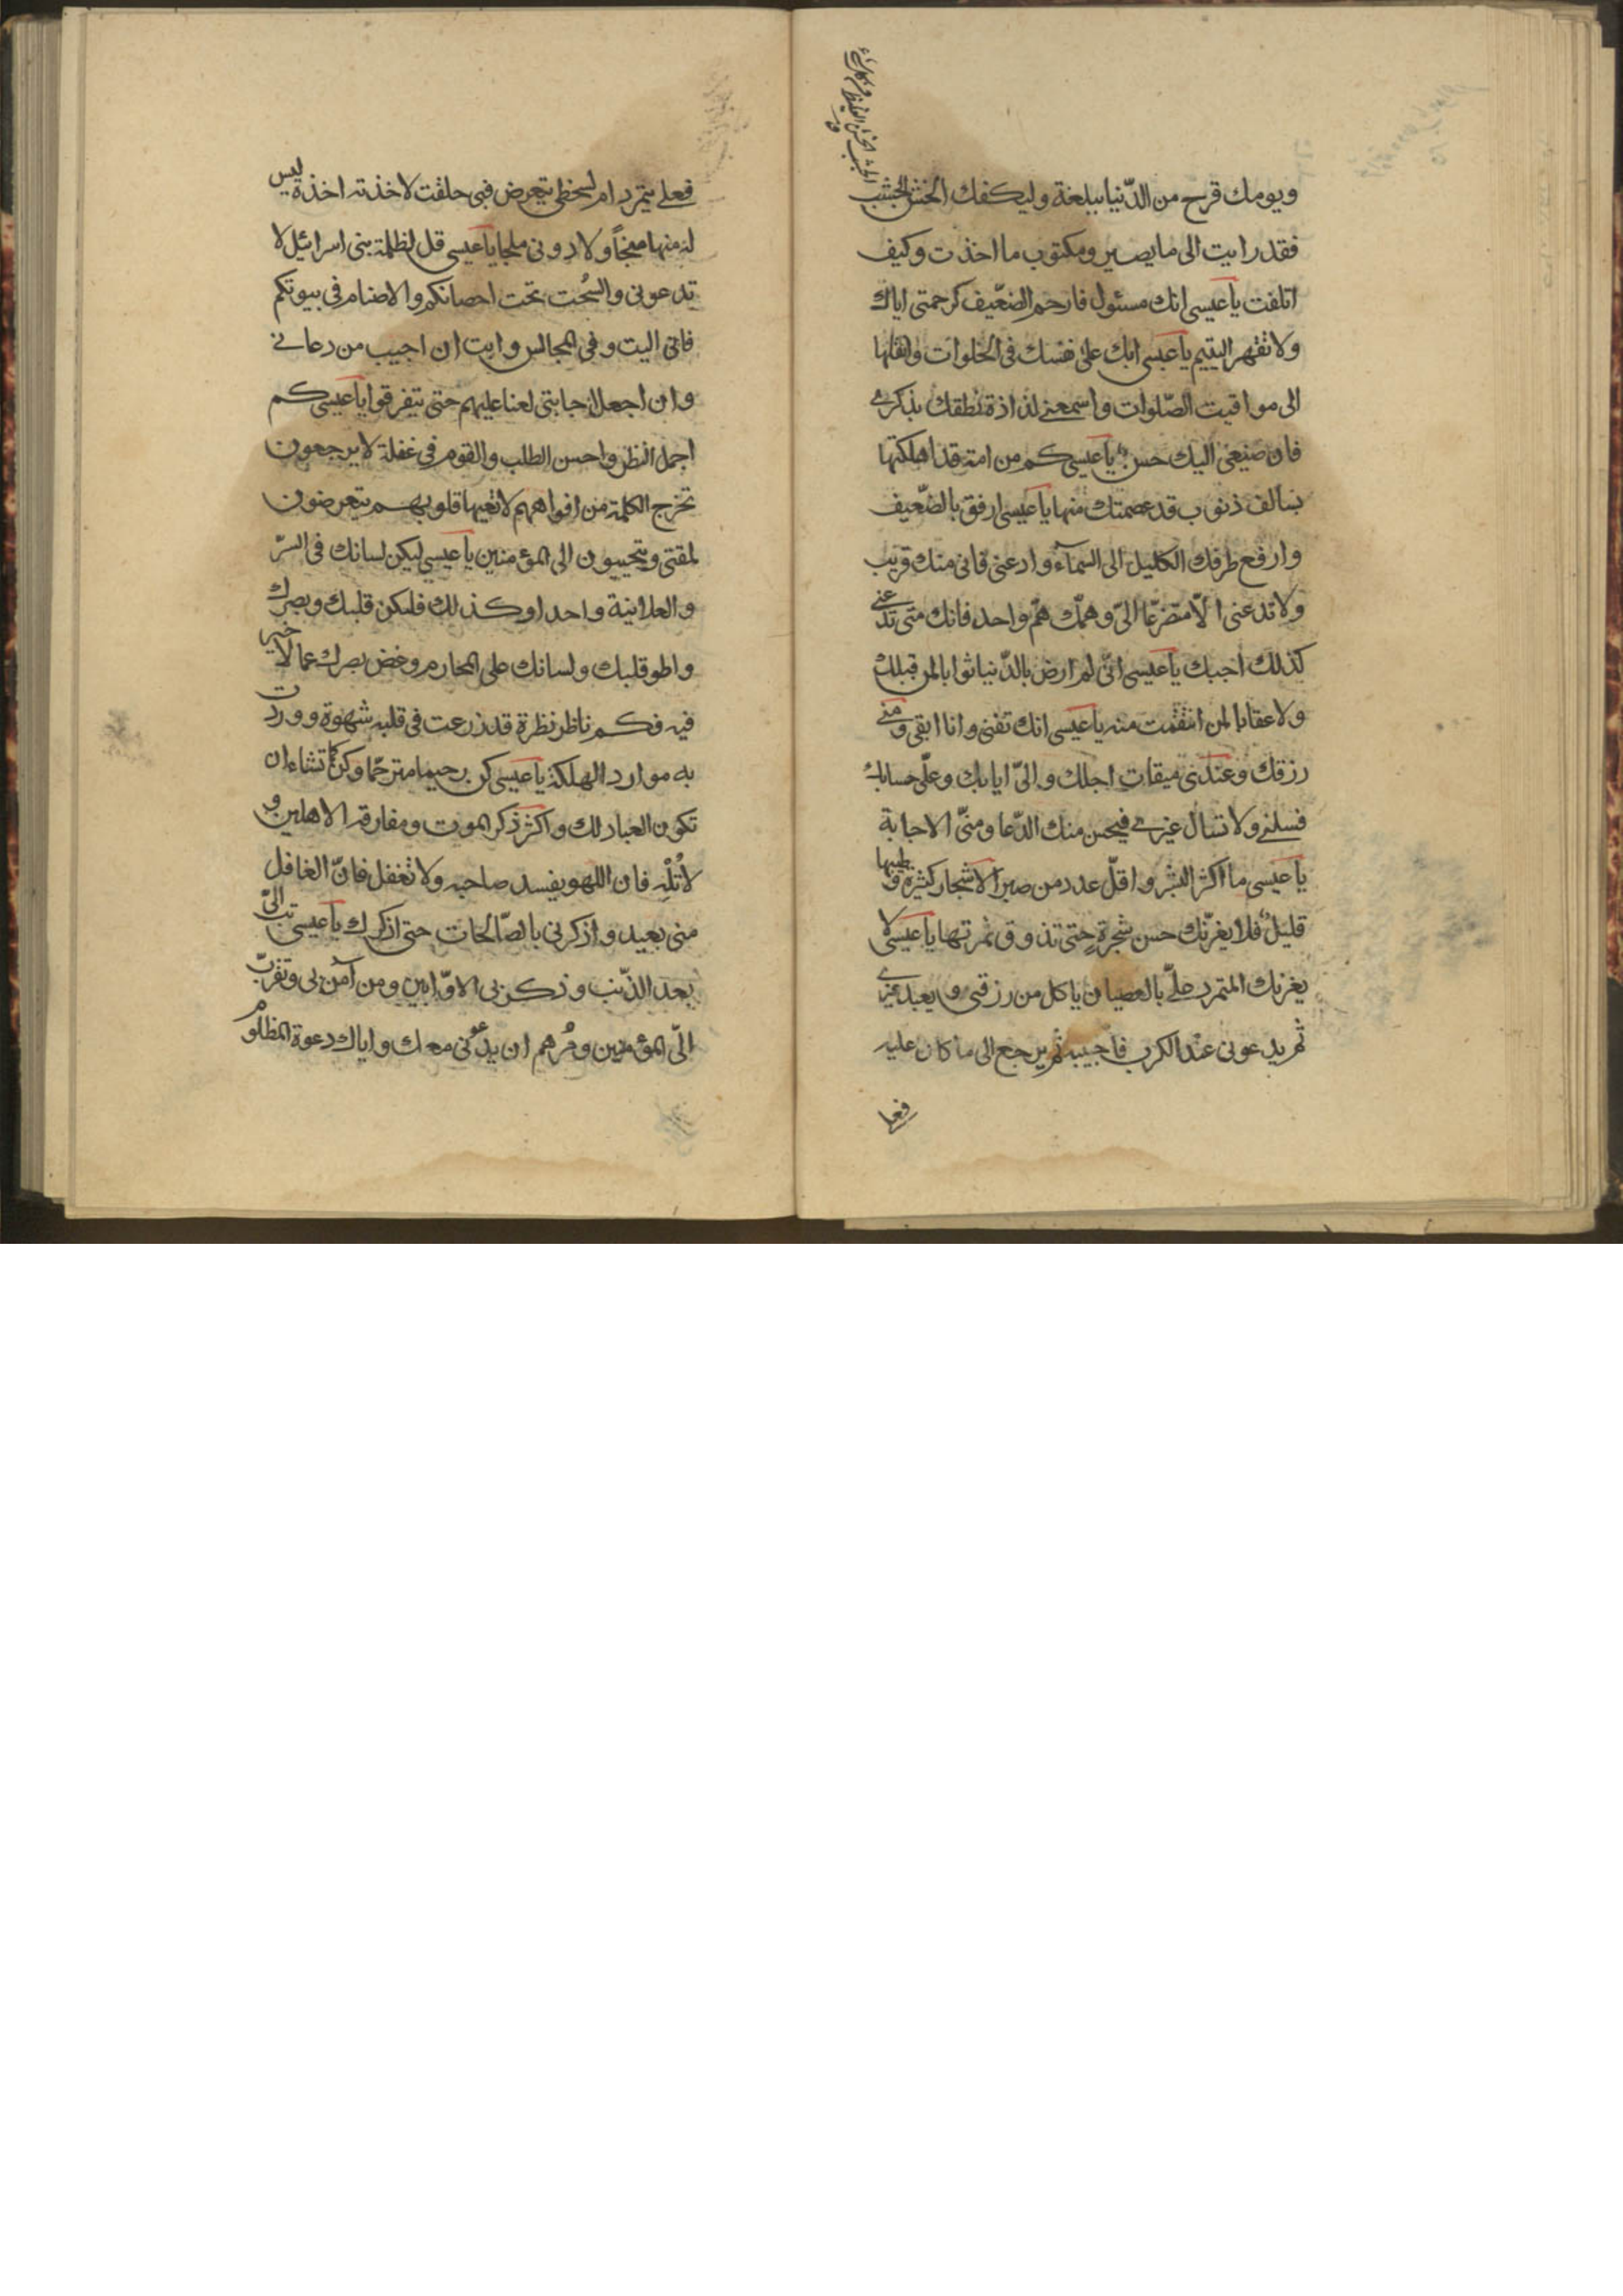 ويومك قرح من الدّنيا ببلغة وليكفك الخشن الجشب
فقد رايت الى ما يصير ومكتوب ما اخذت وكيف
اتلفت يا عيسى انك مسئول فارحم الضّعيف كرحمتى اياك
ولا تقهر اليتيم يا عيسى ابك على نفسك فى الخلوات وانقلها
الى مواقيت الصّلوات واسمعنى لذاذة نطقك بذكرى
فان صنيعى اليك حسن يا عيسى كم من امة قد اهلكتها
بسالف ذنوب قد عصمتك منها يا عيسى ارفق بالضّعيف
وارفع طرفك الكليل الى السمآء وادعنى فانى منك قريب
ولا تدعنى الّا متضرّعا الىّ وهمّك همّ واحد فانك متى تدعنى
كذلك اجبك يا عيسى انّى لم ارض بالدّنيا ثوابا لمن قبلك
ولا عقابا لمن انتقمت منه يا عيسى انك تفنى وانا ابقى ومنى
رزقك وعندى ميقات اجلك والىّ ايابك وعلىّ حسابك
فسلنى ولا تسال غيرى فيحسن منك الدّعا ومنّى الاجابة
يا عيسى ما اكثر البشر واقلّ عدد من صبر الاشجار كثيرة وطيبها
قليل فلا يغرّنك حسن شجرة حتى تذوق ثمرتها يا عيسى لا
يغرنك المتمرد علىّ بالعصيان ياكل من رزقى ويعبد غيرى
ثم يدعونى عند الكرب فاجيبه ثم يرجع الى ما كان عليه
فعلى
فعلى يتمرد ام لسخطى يتعرض فبى حلفت لاخذنه اخذة ليس
له منها منجاً ولا دونى ملجا يا عيسى قل لظلمة بنى اسرائيل لا
تدعونى والسُحت تحت احصانكم والاصنام فى بيوتكم
فانى اليت وفى المجالس وايت ان اجيب من دعانى
وان اجعل اجابتى لعنا عليهم حتى يتفرقوا يا عيسى كم
اجمل النظر واحسن الطلب والقوم فى غفلة لا يرجعون
تخرج الكلمة من افواههم لا تعيها قلوبهم يتعرضون
لمقتى ويتحببون الى المؤمنين يا عيسى ليكن لسانك فى السرّ
والعلانية واحدا وكذلك فليكن قلبك وبصرك
واطو قلبك ولسانك على المحارم وغض بصرك عما لا خير
فيه فكم ناظر نظرة قد زرعت فى قلبه شهوة ووردت
به موارد الهلكة يا عيسى كن رحيما مترحّما وكن كما تشاء ان
تكون العباد لك واكثر ذكر الموت ومفارقة الاهلين و
لا تُلْهِ فان اللهو يفسد صاحبه ولا تغفل فانّ الغافل
منى بعيد واذكرنى بالصّالحات حتى اذكرك يا عيسى تب الىّ
بعد الذّنب وذكر بى الاوّابين ومن آمن بى وتقرّب
الى المؤمنين ومُرهم ان يدعونى معك واياك دعوة المظلوم